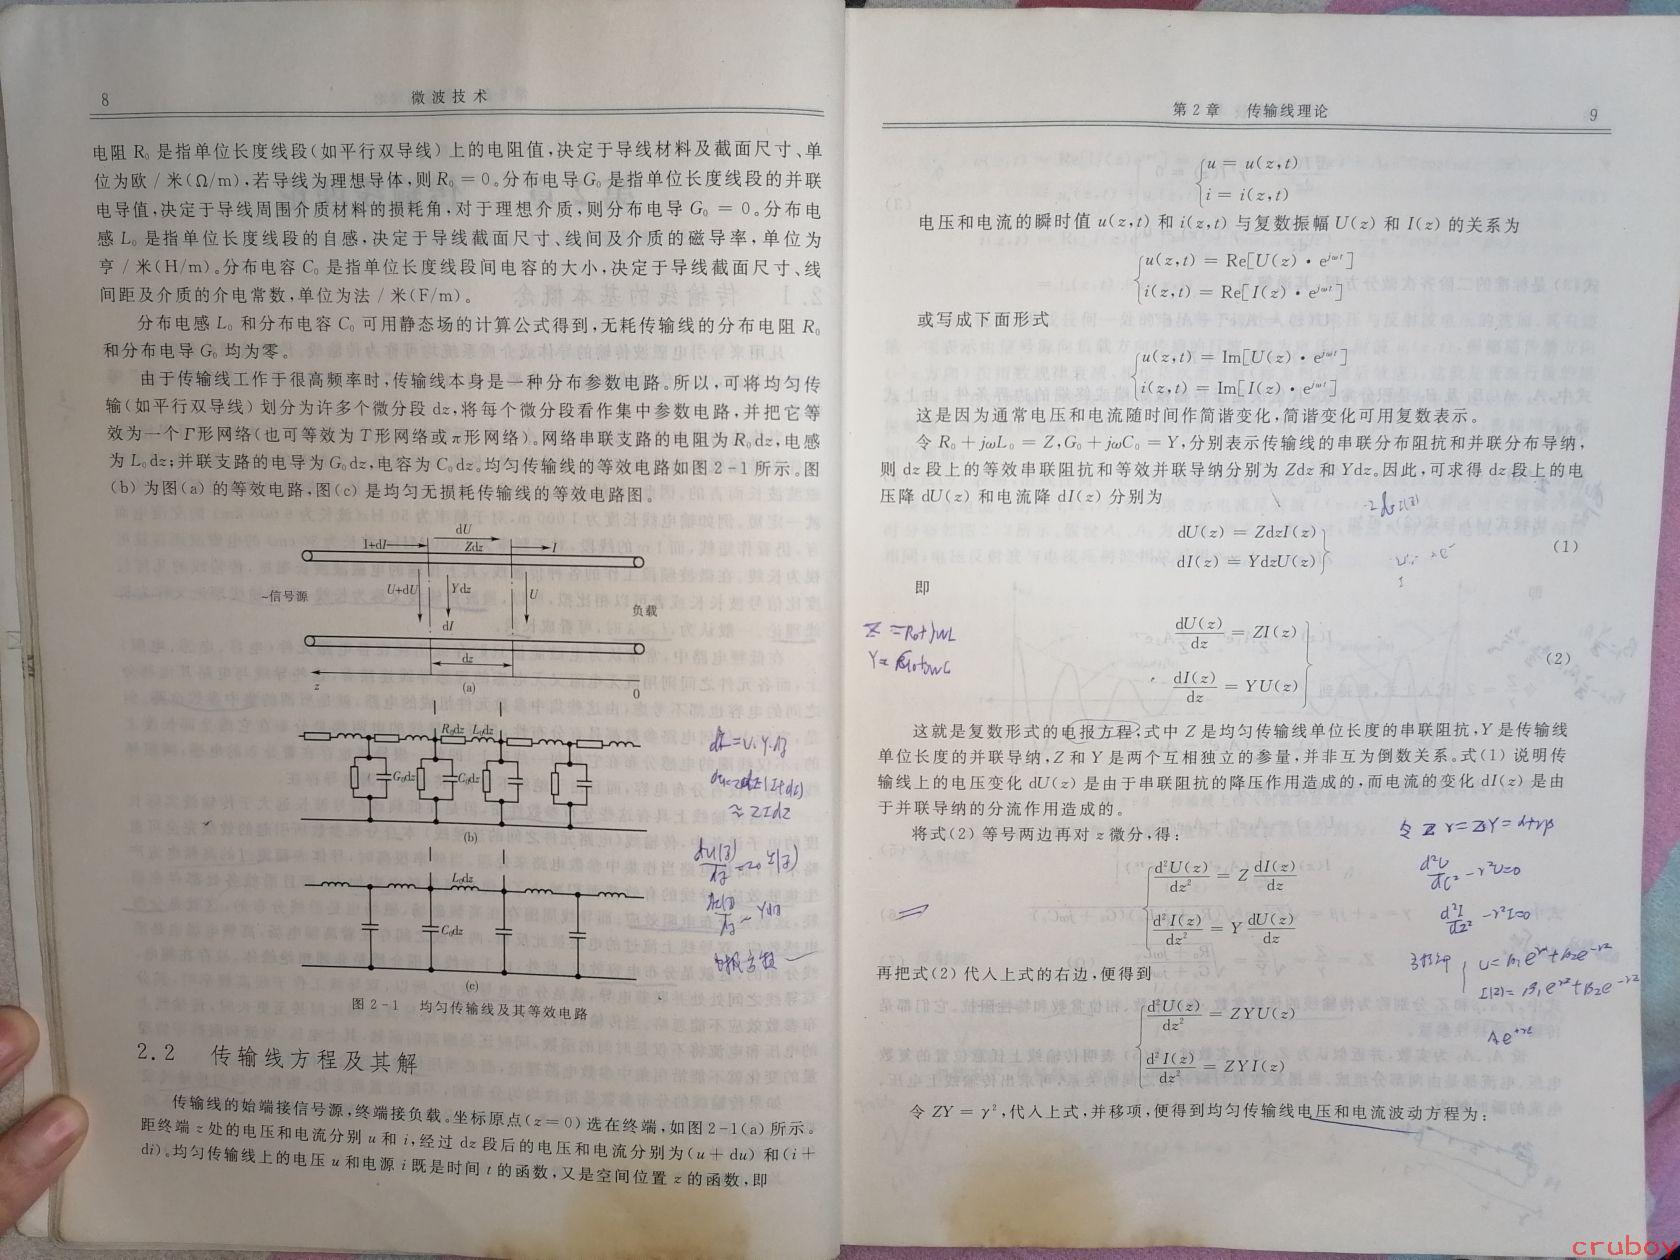 8 微波技术
电阻 R₀ 是指单位长度线段(如平行双导线) 上的电阻值,决定于导线材料及截面尺寸、单
位为欧 / 米(Ω/m),若导线为理想导体,则 R₀ = 0。分布电导 G₀ 是指单位长度线段的并联
电导值,决定于导线周围介质材料的损耗角,对于理想介质,则分布电导 G₀ = 0。分布电
感 L₀ 是指单位长度线段的自感,决定于导线截面尺寸、线间及介质的磁导率,单位为
亨 / 米(H/m)。分布电容 C₀ 是指单位长度线段间电容的大小,决定于导线截面尺寸、线
间距及介质的介电常数,单位为法 / 米(F/m)。
分布电感 L₀ 和分布电容 C₀ 可用静态场的计算公式得到,无耗传输线的分布电阻 R₀
和分布电导 G₀ 均为零。
由于传输线工作于很高频率时,传输线本身是一种分布参数电路。所以,可将均匀传
输(如平行双导线) 划分为许多个微分段 dz,将每个微分段看作集中参数电路,并把它等
效为一个Γ形网络(也可等效为 T形网络或π形网络)。网络串联支路的电阻为 R₀dz,电感
为 L₀dz;并联支路的电导为 G₀dz,电容为 C₀dz。均匀传输线的等效电路如图 2-1 所示。图
(b) 为图(a) 的等效电路,图(c) 是均匀无损耗传输线的等效电路图。
dU
I+dI Zdz I
~信号源 U+dU Ydz U 负载
dI
dz
z (a) 0
R₀dz L₀dz
G₀dz C₀dz
(b)
L₀dz
C₀dz
(c)
图 2-1 均匀传输线及其等效电路
2.2 传输线方程及其解
传输线的始端接信号源,终端接负载。坐标原点(z = 0) 选在终端,如图 2-1(a) 所示。
距终端 z 处的电压和电流分别 u 和 i,经过 dz 段后的电压和电流分别为(u + du) 和(i +
di)。均匀传输线上的电压 u 和电源 i 既是时间 t 的函数,又是空间位置 z 的函数,即
第 2 章 传输线理论 9
u = u(z,t)
i = i(z,t)
电压和电流的瞬时值 u(z,t) 和 i(z,t) 与复数振幅 U(z) 和 I(z) 的关系为
u(z,t) = Re[U(z)·e^{jωt}]
i(z,t) = Re[I(z)·e^{jωt}]
或写成下面形式
u(z,t) = Im[U(z)·e^{jωt}]
i(z,t) = Im[I(z)·e^{jωt}]
这是因为通常电压和电流随时间作简谐变化,简谐变化可用复数表示。
令 R₀ + jωL₀ = Z,G₀ + jωC₀ = Y,分别表示传输线的串联分布阻抗和并联分布导纳,
则 dz 段上的等效串联阻抗和等效并联导纳分别为 Zdz 和 Ydz。因此,可求得 dz 段上的电
压降 dU(z) 和电流降 dI(z) 分别为
dU(z) = ZdzI(z)
dI(z) = YdzU(z) (1)
即
dU(z)/dz = ZI(z)
dI(z)/dz = YU(z) (2)
Z = R₀+jωL
这就是复数形式的电报方程,式中 Z 是均匀传输线单位长度的串联阻抗,Y 是传输线
单位长度的并联导纳,Z 和 Y 是两个互相独立的参量,并非互为倒数关系。式(1) 说明传
输线上的电压变化 dU(z) 是由于串联阻抗的降压作用造成的,而电流的变化 dI(z) 是由
于并联导纳的分流作用造成的。
将式(2) 等号两边再对 z 微分,得:
d²U(z)/dz² = Z dI(z)/dz
d²I(z)/dz² = Y dU(z)/dz
再把式(2) 代人上式的右边,便得到
d²U(z)/dz² = ZYU(z)
d²I(z)/dz² = ZYI(z)
令 ZY = γ²,代人上式,并移项,便得到均匀传输线电压和电流波动方程为:
≈ ZIdz
电报方程
cruboy